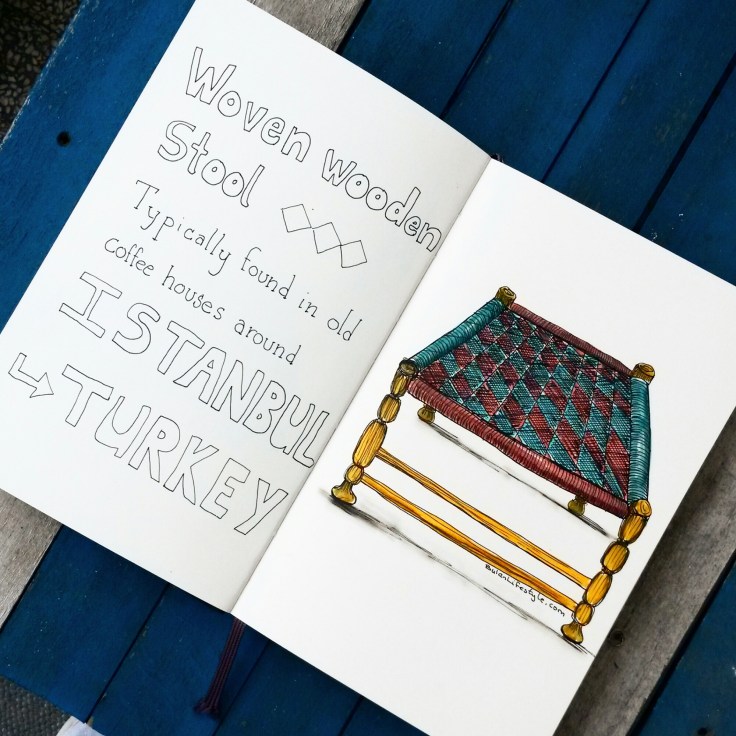 Woven wooden
Stool
Typically found in old
coffee houses around
ISTANBUL
TURKEY
BulanLifestyle.com